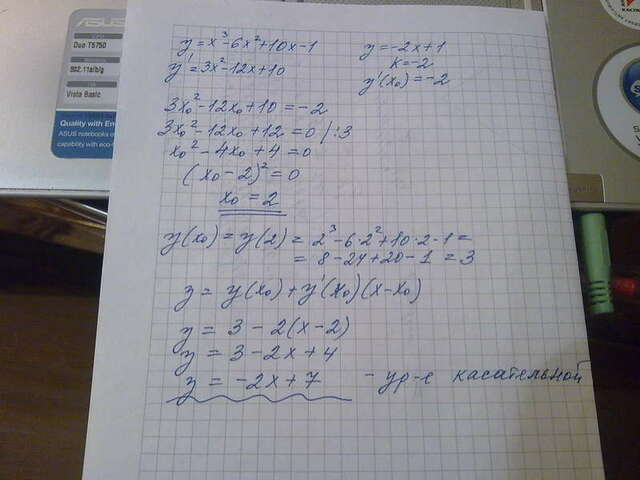 ASUS
Duo T5750
802.11a/b/g
Vista Basic
Quality with
ASUS notebooks
capability with eco-
y = x³-6x²+10x-1
y' = 3x²-12x+10
y = -2x+1
k = -2
y'(x₀) = -2
3x₀²-12x₀+10 = -2
3x₀²-12x₀+12 = 0 /:3
x₀² - 4x₀ + 4 = 0
(x₀ - 2)² = 0
x₀ = 2
y(x₀) = y(2) = 2³-6·2²+10·2-1 =
= 8-24+20-1 = 3
y = y(x₀)+y'(x₀)(x-x₀)
y = 3-2(x-2)
y = 3-2x+4
y = -2x+7 - ур-е касательной